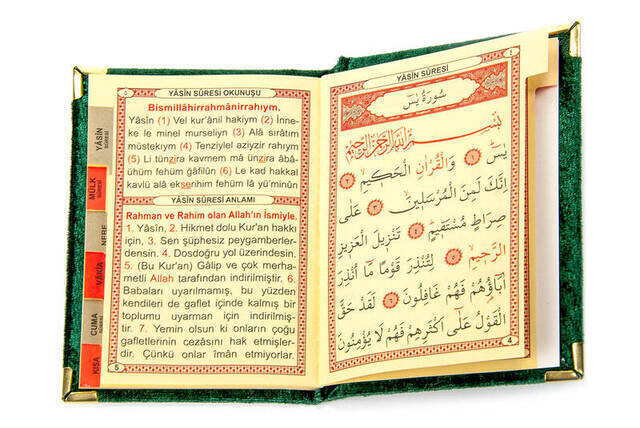 YÂSİN SÛRESİ OKUNUŞU
Bismillâhirrahmânirrahıym.
Yâsîn (1) Vel kur'ânil hakiym (2) İnne-
ke le minel murseliyn (3) Alâ sırâtim
müstekıym (4) Tenziylel aziyzir rahıym
(5) Li tünzira kavmem mâ ünzira âbâ-
ühüm fehüm gâfilûn (6) Le kad hakkal
kavlü alâ ekserihim fehüm lâ yü'minûn
YÂSİN SÛRESİ ANLAMI
Rahman ve Rahim olan Allah'ın İsmiyle.
1. Yâsîn, 2. Hikmet dolu Kur'an hakkı
için, 3. Sen şüphesiz peygamberler-
densin. 4. Dosdoğru yol üzerindesin.
5. (Bu Kur'an) Gâlip ve çok merha-
metli Allah tarafından indirilmiştir. 6.
Babaları uyarılmamış, bu yüzden
kendileri de gaflet içinde kalmış bir
toplumu uyarman için indirilmiş-
tir. 7. Yemin olsun ki onların çoğu
gafletlerinin cezasını hak etmişler-
dir. Çünkü onlar îmân etmiyorlar.
5
YÂSİN
SÛRESİ
MÜLK
SÛRESİ
NEBE
VÂKIA
CUMA
KISA
٤
YÂSİN SÛRESİ
سُورَةُ يٰسٓ
بِسْمِ اللهِ الرَّحْمٰنِ الرَّحِيمِ
يٰسٓ ﴿١﴾ وَالْقُرْاٰنِ الْحَكِيمِ ﴿٢﴾
اِنَّكَ لَمِنَ الْمُرْسَلِينَ ﴿٣﴾ عَلٰى
صِرَاطٍ مُسْتَقِيمٍ ﴿٤﴾ تَنْزِيلَ الْعَزِيزِ
الرَّحِيمِ ﴿٥﴾ لِتُنْذِرَ قَوْمًا مَا اُنْذِرَ
اٰبَاؤُهُمْ فَهُمْ غَافِلُونَ ﴿٦﴾ لَقَدْ حَقَّ
الْقَوْلُ عَلٰى اَكْثَرِهِمْ فَهُمْ لَا يُؤْمِنُونَ
4